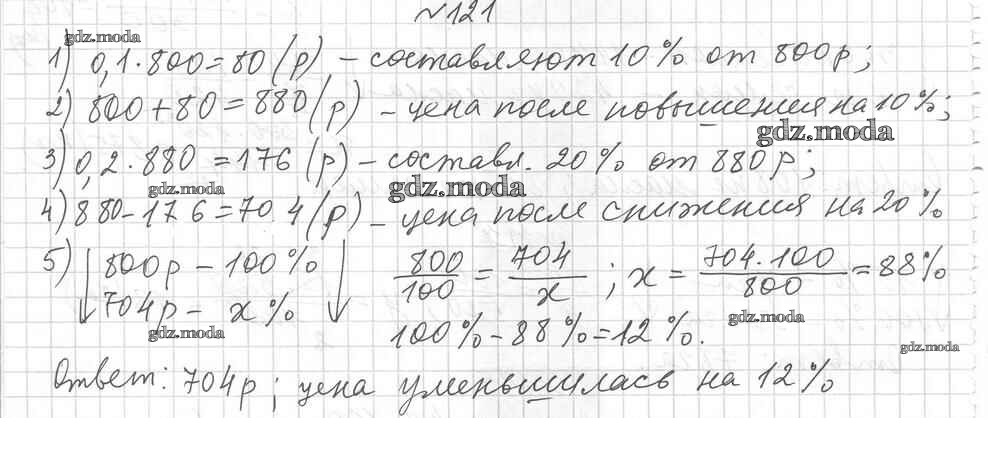 №121
gdz.moda
1) 0,1·800=80(р) – составляют 10% от 800р;
2) 800+80=880(р) – цена после повышения на 10%;
gdz.moda
3) 0,2·880=176(р) – составл. 20% от 880р;
gdz.moda gdz.moda
4) 880–176=704(р) – цена после снижения на 20%
5) ↓ 800р – 100% ↓ 800/100 = 704/x ; x = 704·100/800 = 88%
704р – x%
gdz.moda gdz.moda
100%–88%=12%.
gdz.moda
Ответ: 704р; цена уменьшилась на 12%